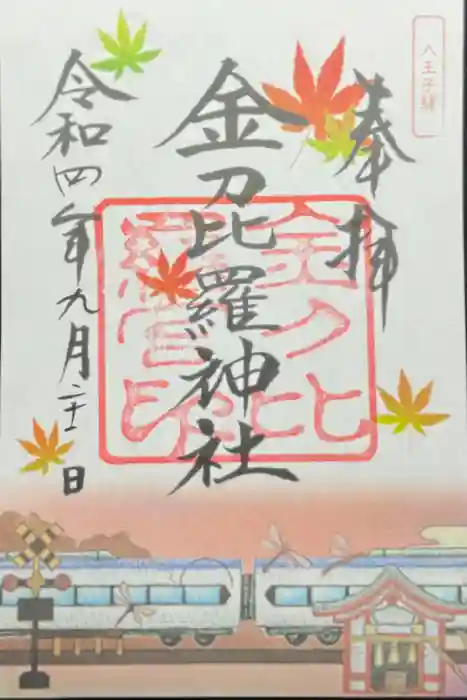 八王子驛
奉拝
金刀比
羅宮印
金刀比羅神社
令和四年九月二十一日